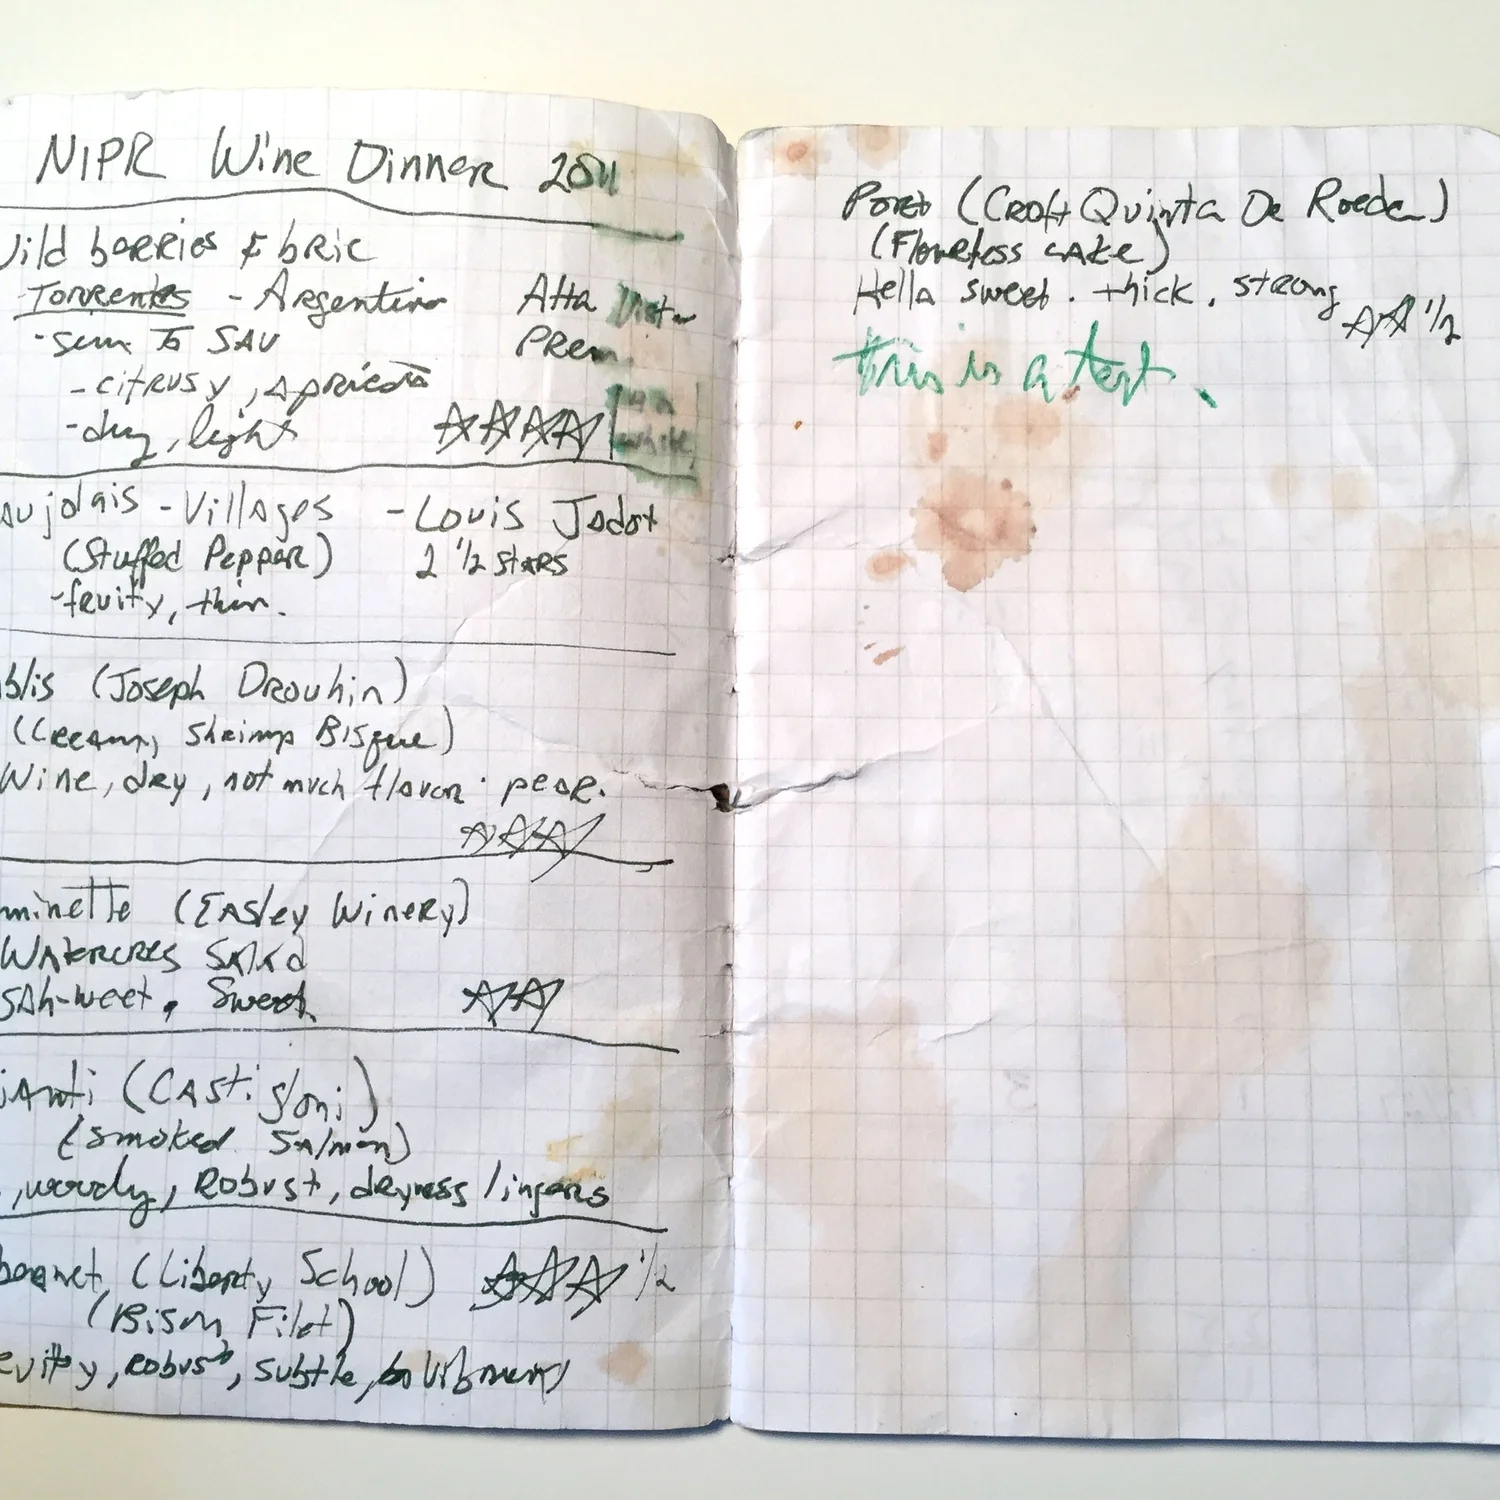 NIPR Wine Dinner 2011
ild berries & bric
Torrentes - Argentina Alta Vista
-sim to SAV Prem
-citrusy, apricots
-dry, light white
aujolais - Villages - Louis Jadot
(Stuffed Pepper) 2 1/2 stars
-fruity, thin.
blis (Joseph Drouhin)
(Creamy Shrimp Bisque)
Wine, dry, not much flavor. pear.
minette (Easley Winery)
Watercres Salad
SAh-weet. Sweet
ianti (Castiglioni)
(Smoked Salmon)
, woody, Robust, dryness lingers
bernet (Liberty School) 1/2
(Bison Filet)
uity, Robust, subtle,
Port (Croft Quinta De Roeda)
(Flourless cake)
Hella sweet. thick. strong
1/2
this is a test.